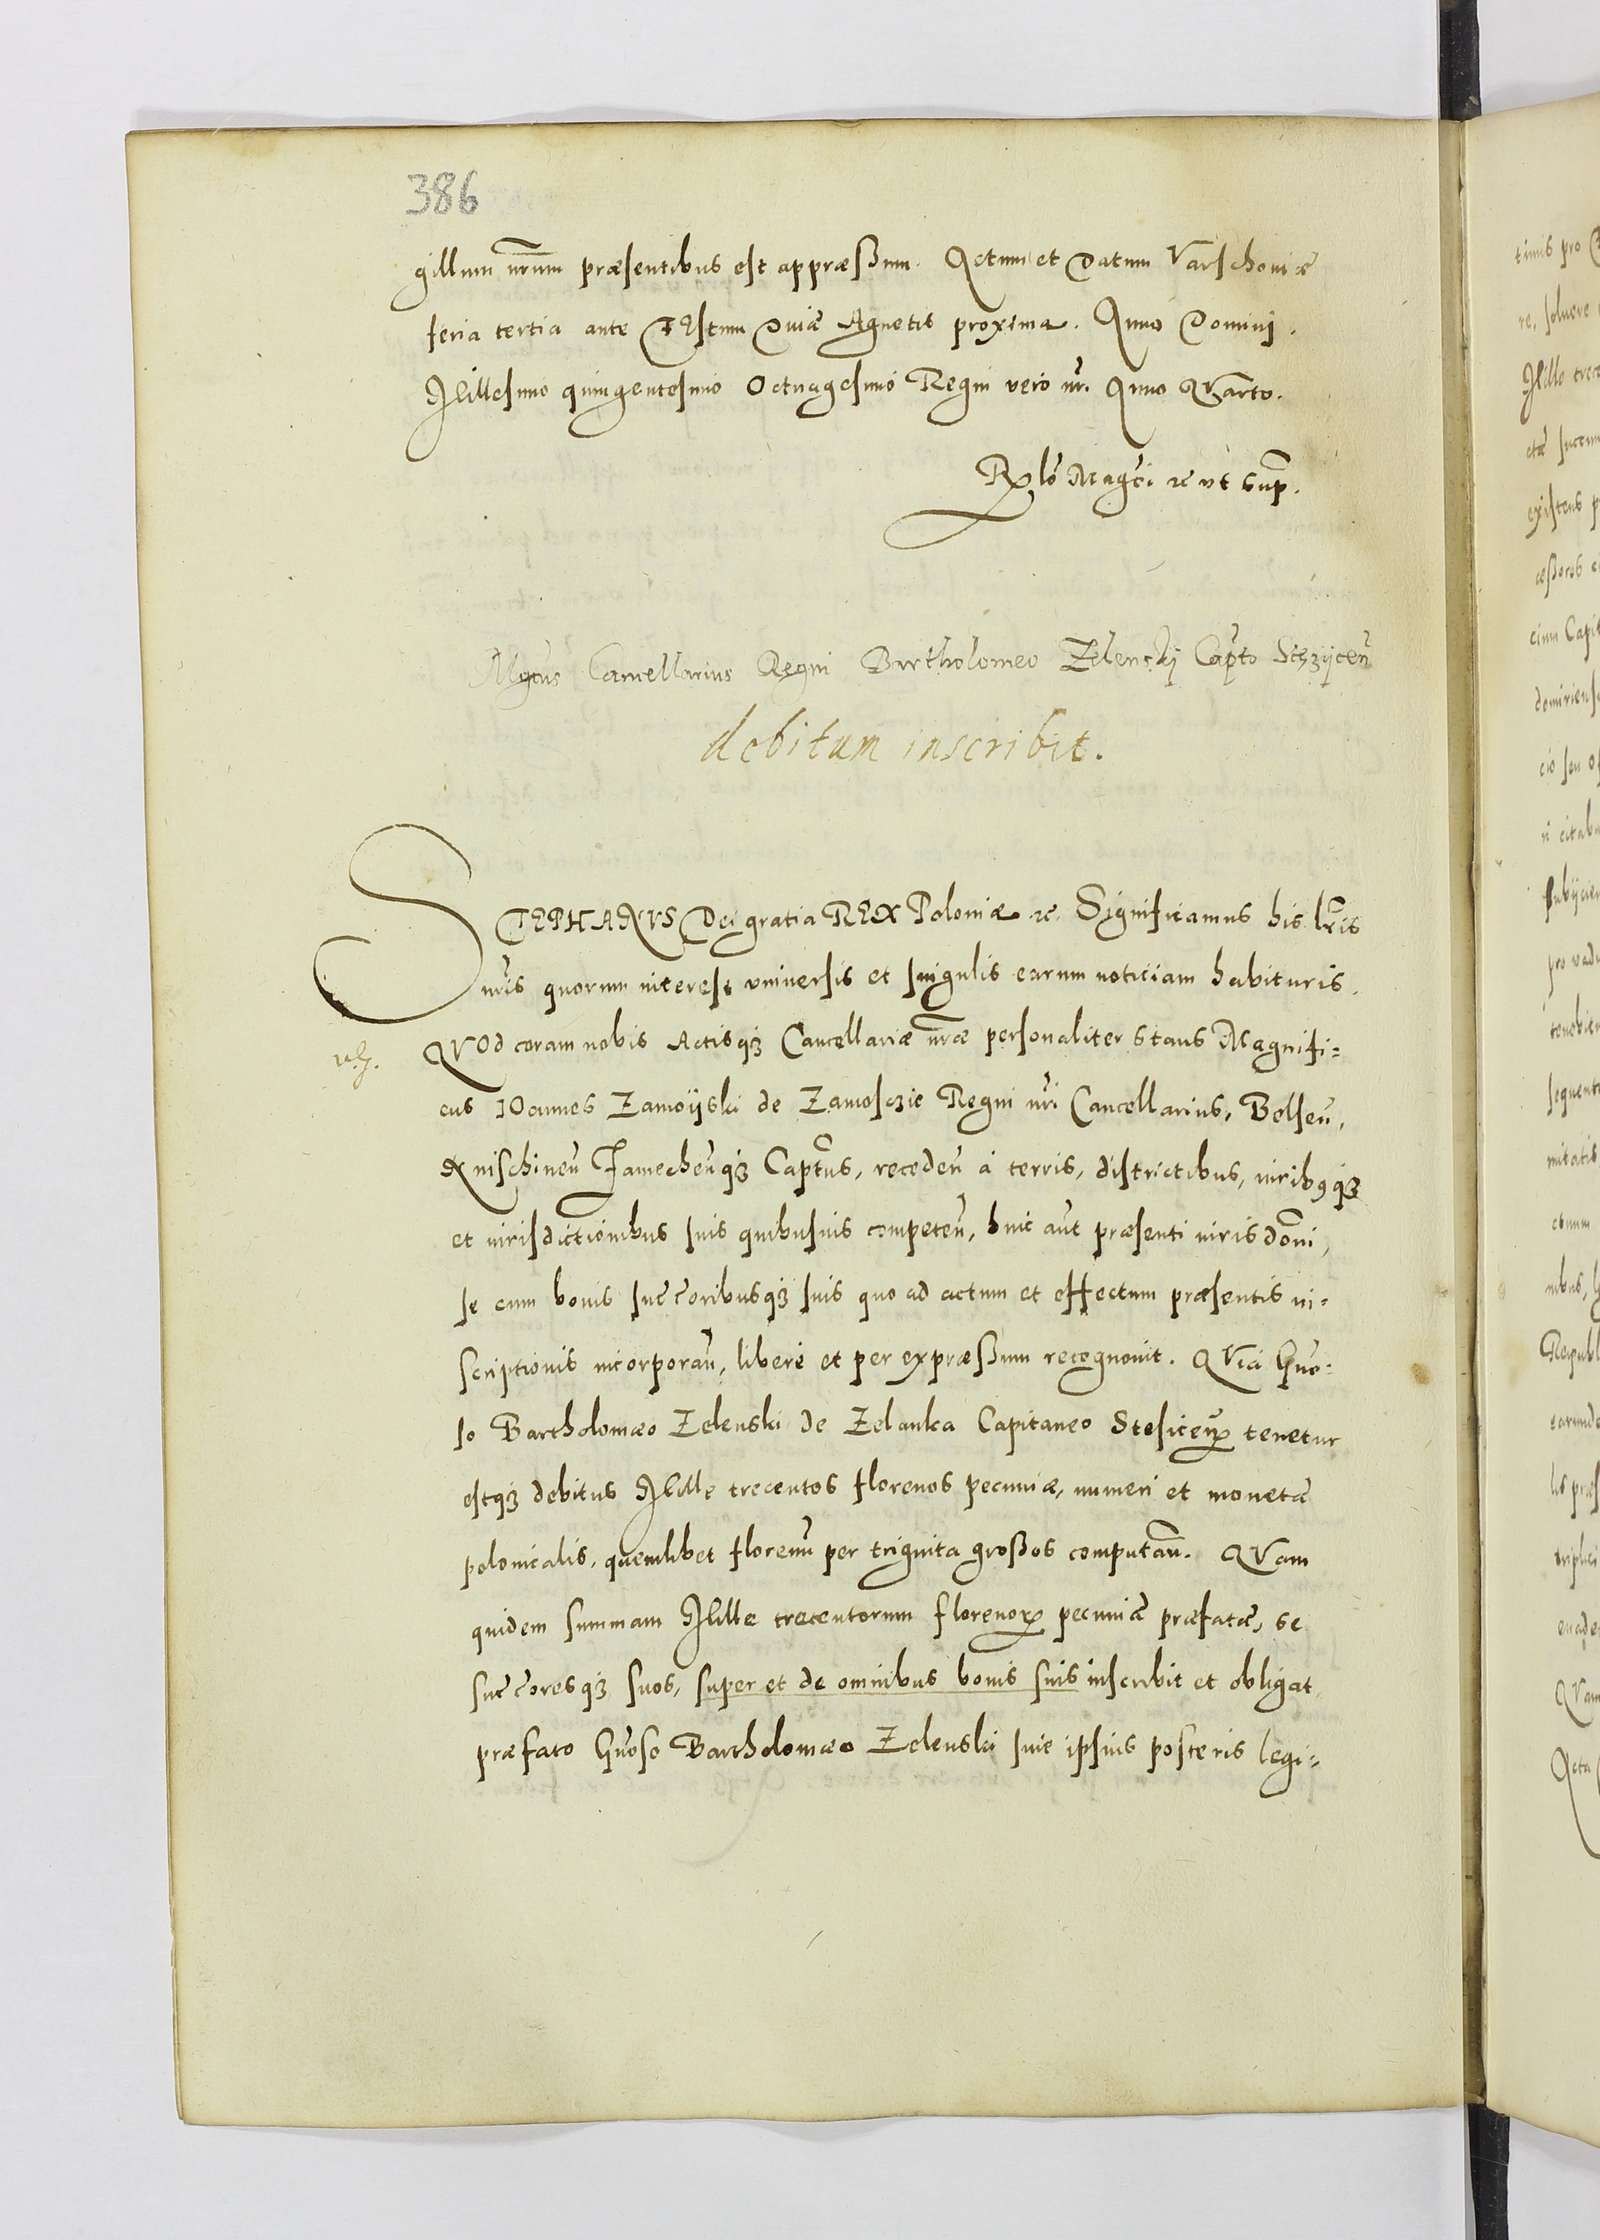 386
gillum nr̃um præsentibus est appræssum. Actum et Datum Varschoviæ
feria tertia ante FEstum Divæ Agnetis proxima. Anno Domini.
Millesimo quingentesimo Octuagesimo Regni vero nr̃. Anno Quarto.
Rłõ Mag͠ci ꝛc ut sup̃.
Mgcus Cancellarius Regni Bartholomeo Zelenskj Capto Stzijcen̄
debitum inscribit.
STEPHANVS Dei gratia REX Poloniæ ꝛc. Significamus his lr̃is
nr̃is quorum interest universis et singulis earum noticiam habituris.
QVOd coram nobis Actisqꝫ Cancellariæ nr̃æ personaliter stans Magnifi=
cus IOannes Zamoijski de Zamosczie Regni nr̃i Cancellarius, Belsen̄,
Knischinen̄ Zamechen̄qꝫ Capt̃us, receden̄ à terris, districtibus, iuribꝰqꝫ
et iurisdictionibus suis quibusvis competen̄, huic aūt præsenti iurisdõni,
se cum bonis suc̃coribusqꝫ suis quo ad actum et effectum præsentis in=
scriptionis incorporan̄, liberè et per expræssum recognovit. QVia Gñro=
so Bartholomæo Zelenski de Zelanka Capitaneo Stesicen̄ tenetur
estqꝫ debitus Mille trecentos florenos pecuniæ, numeri et monetæ
polonicalis, quemlibet florenū per triginta grossos computan̄. QVam
quidem summam Mille trecentorum florenoꝝ pecuniæ præfatæ, se
suc̃coresqꝫ suos, super et de omnibus bonis suis inscribit et obligat
præfato Gñroso Bartholomæo Zelenski suis ipsius posteris legi=